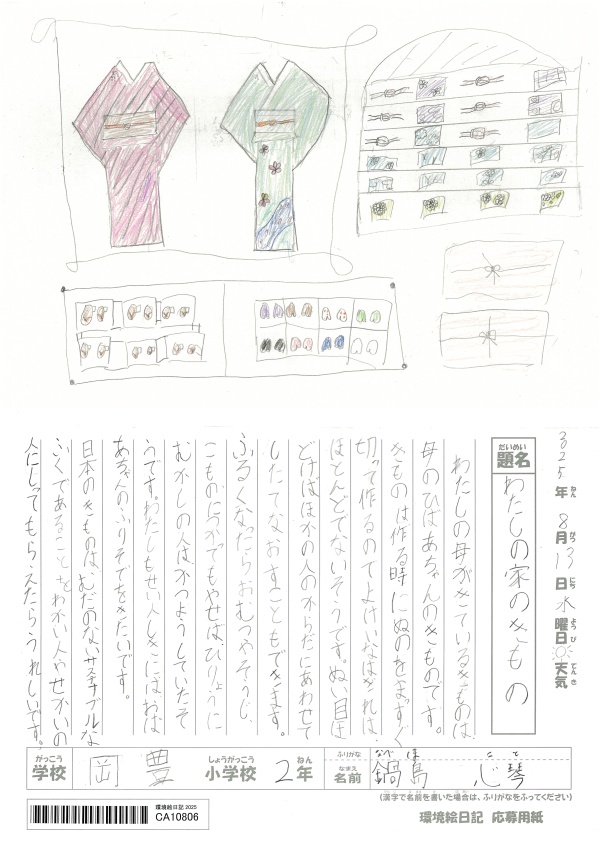 2025年8月13日水曜日 天気
ねん がつ にち ようび てんき
だいめい
題名 わたしの家のきもの
わたしの母がきているきものは、
母のひばあちゃんのきものです。
きものは作る時にぬのをまっすぐ
切って作るのでよけいなはぎれは、
ほとんどでないそうです。ぬい目を
どけばほかの人のからだにあわせて
したてなおすこともできます。
ふるくなったらおむつやそうじ、
こものにつかでもやせば、ひりょうに
むかしの人はかつようしていたそ
うです。わたしもせい人しきにはおば
あちゃんのふりそでをきたいです。
日本のきものは、むだのないサステナブルな
ふくであることをわかい人やせかいの
人にしってもらえたらうれしいです。
がっこう
学校 岡豊
しょうがっこう
小学校
2年
ねん
ふりがな なべしま こと
なまえ
名前 鍋島 心琴
(漢字で名前を書いた場合は、ふりがなをふってください)
環境絵日記 2025
CA10806
環境絵日記 応募用紙